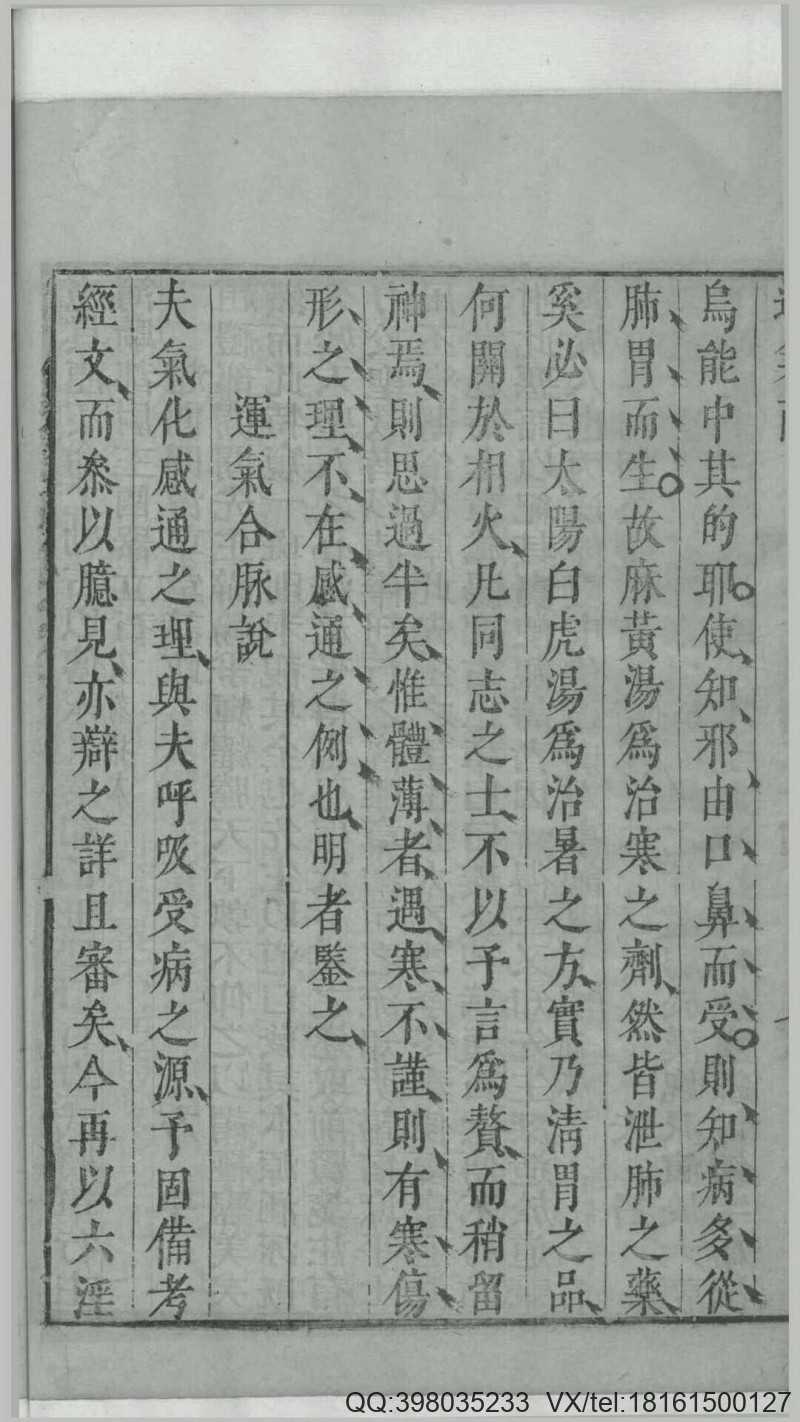 烏能中其的耶使知邪由口鼻而受則知病多從
肺胃而生故麻黃湯爲治寒之劑然皆泄肺之藥
奚必曰太陽白虎湯爲治暑之方實乃清胃之品
何關於相火凡同志之士不以予言爲贅而稍留
神焉則思過半矣惟體薄者遇寒不謹則有寒傷
形之理不在感通之例也明者鑒之
運氣合脉說
夫氣化感通之理與夫呼吸受病之源予固備考
經文而叅以臆見亦辯之詳且審矣今再以六淫
QQ:398035233 VX/tel:18161500127